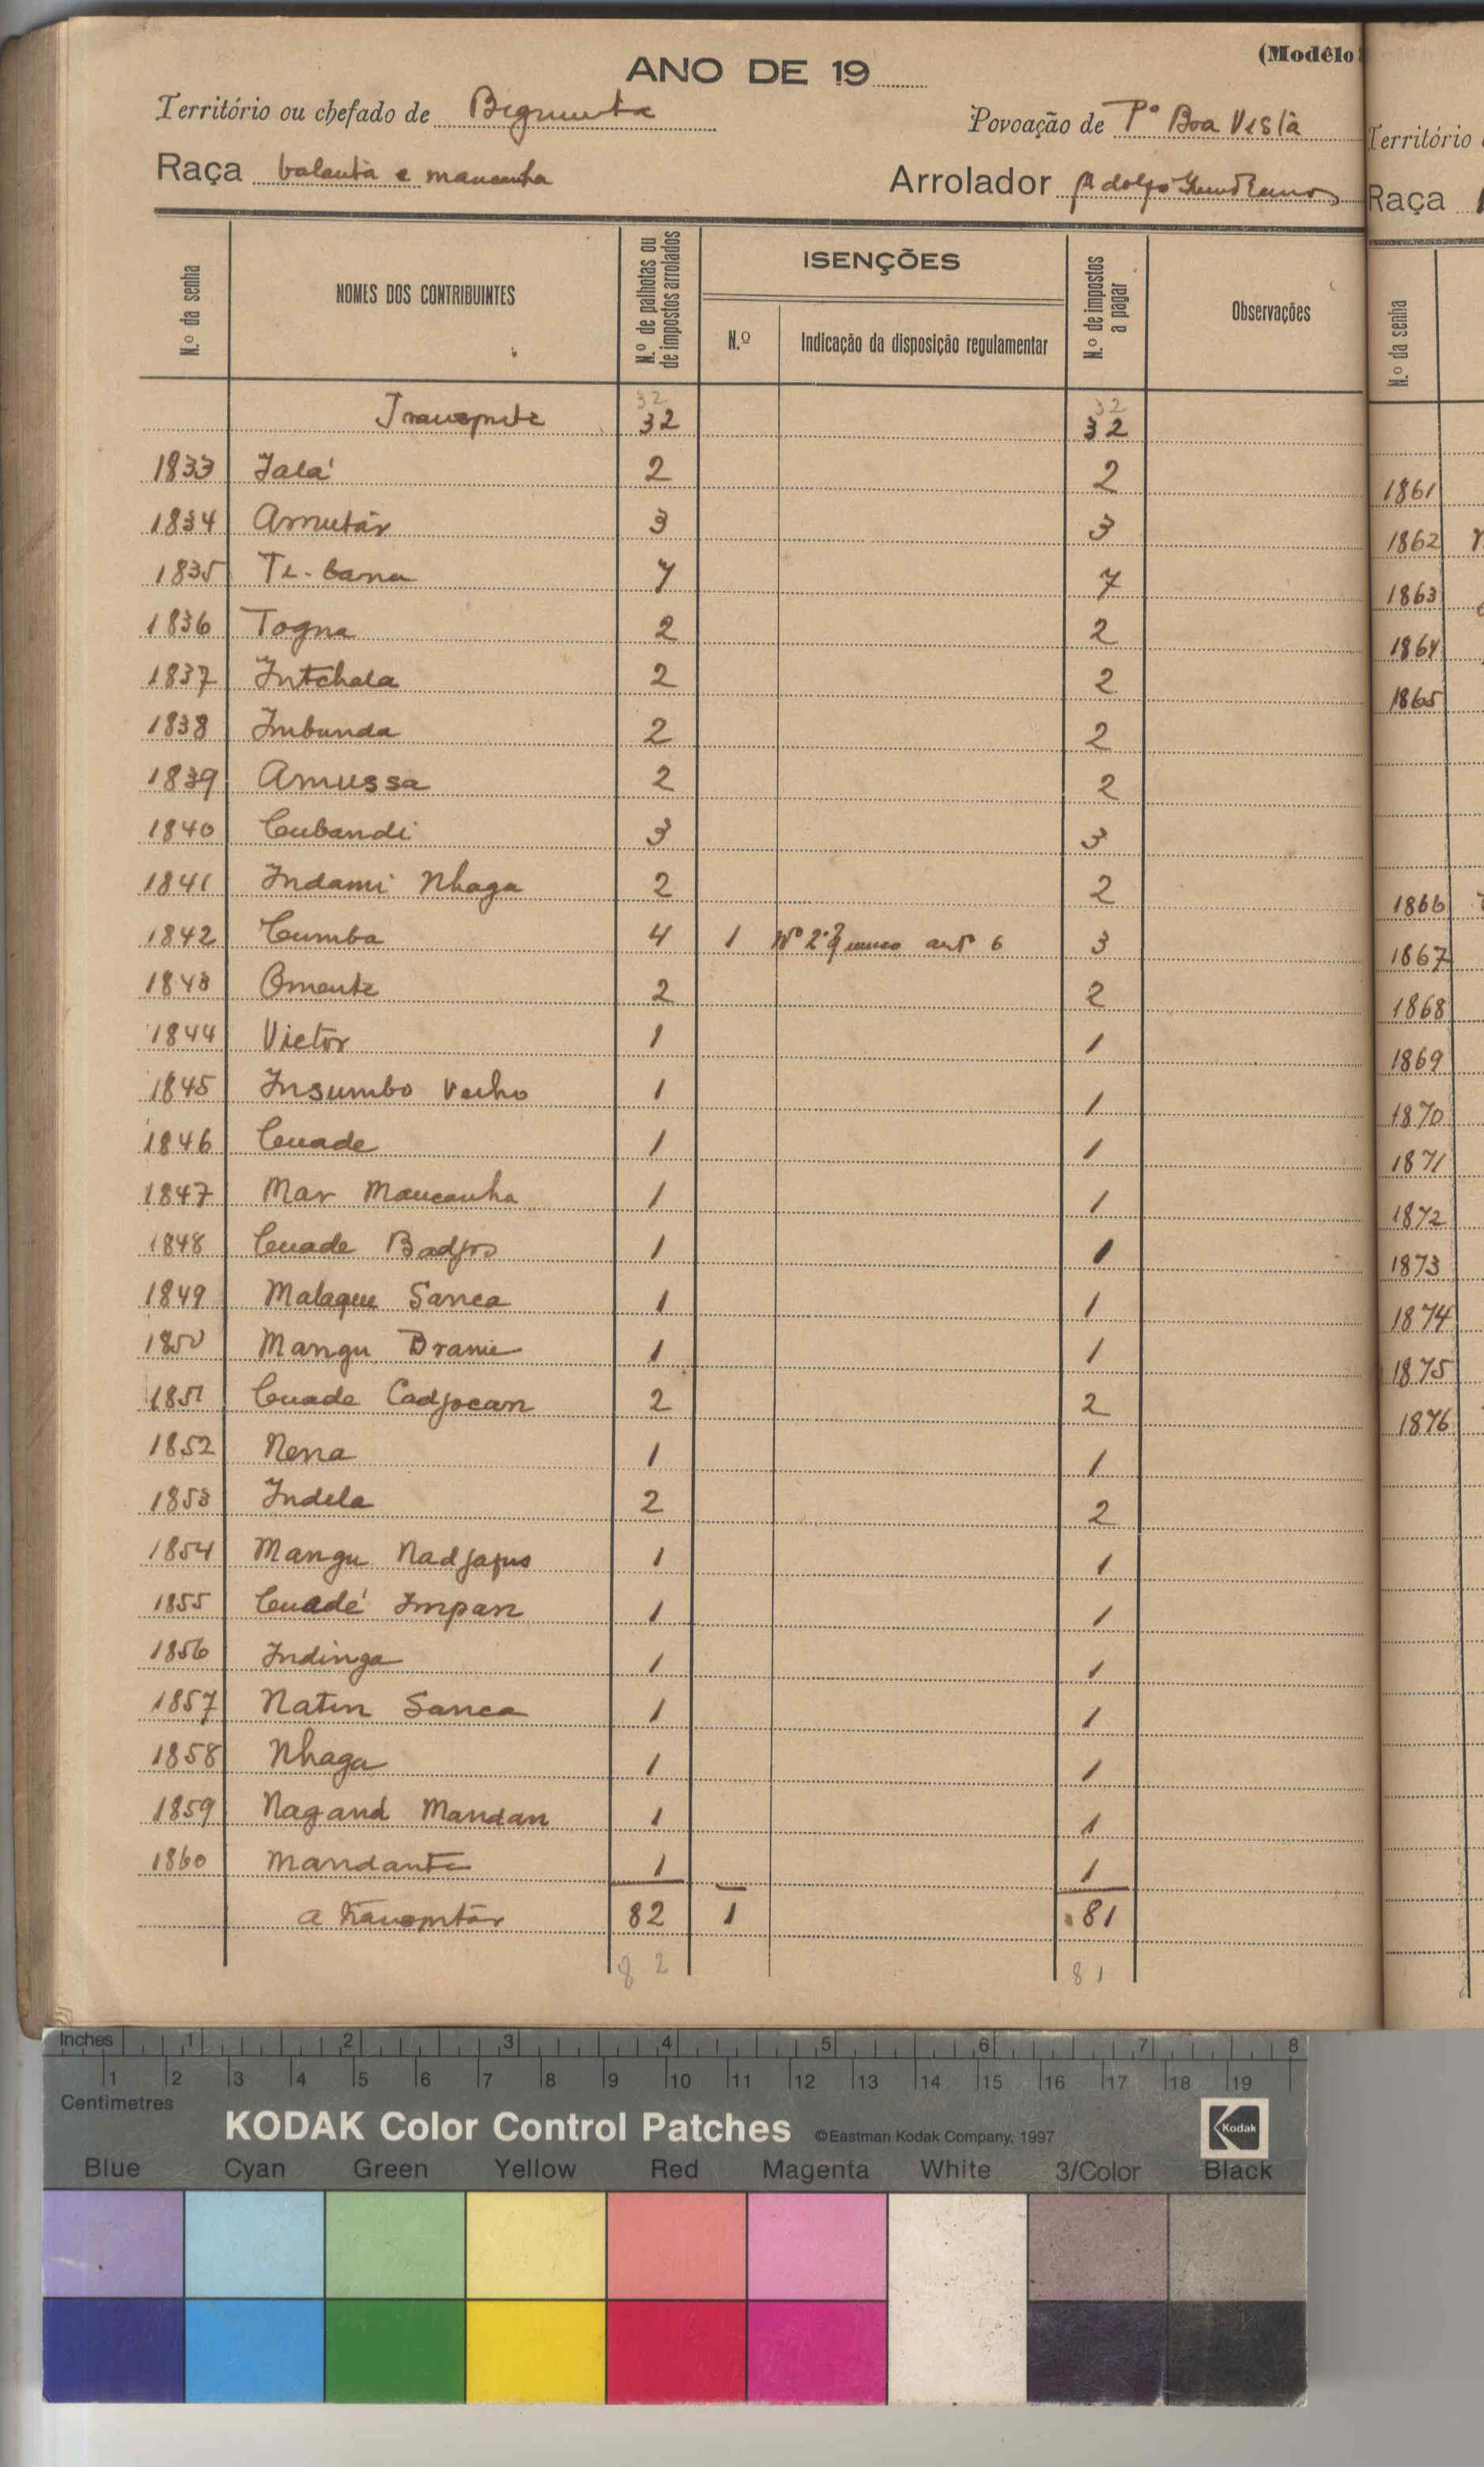 (Modêlo
ANO DE 19
Território ou chefado de
Povoação de Pº Boa Vista
Raça balanta e mancanha
Arrolador Adolfo
N.º da senha
NOMES DOS CONTRIBUINTES
N.º de palhotas ou de impostos arrolados
ISENÇÕES
N.º
Indicação da disposição regulamentar
N.º de impostos a pagar
Observações
32 32
Transporte 32 32
1833 Jalá 2 2
1834 Amutár 3 3
1835 Te-bana 7 7
1836 Togna 2 2
1837 Intchala 2 2
1838 Imbunda 2 2
1839 Amussa 2 2
1840 Cubandi 3 3
1841 Indami Nhaga 2 2
1842 Cumba 4 1 Nº 2º § unico artº 6 3
1843 Omente 2 2
1844 Victor 1 1
1845 Insumbo Velho 1 1
1846 Cuade 1 1
1847 Mar Mancanha 1 1
1848 Cuade Badjos 1 1
1849 Malaque Sanca 1 1
1850 Mangu Brame 1 1
1851 Cuade Cadjocan 2 2
1852 Nena 1 1
1853 Indela 2 2
1854 Mangu 1 1
1855 Cuadé Impan 1 1
1856 Indinga 1 1
1857 Natin Sanca 1 1
1858 Nhaga 1 1
1859 Nagand Mandan 1 1
1860 Mandante 1 1
a transportar 82 1 81
82 81
Território
Raça
N.º da senha
1861
1862
1863
1864
1865
1866
1867
1868
1869
1870
1871
1872
1873
1874
1875
1876
Inches 1 2 3 4 5 6 7 8
1 2 3 4 5 6 7 8 9 10 11 12 13 14 15 16 17 18 19
Centimetres
KODAK Color Control Patches ©Eastman Kodak Company, 1997 Kodak
Blue Cyan Green Yellow Red Magenta White 3/Color Black